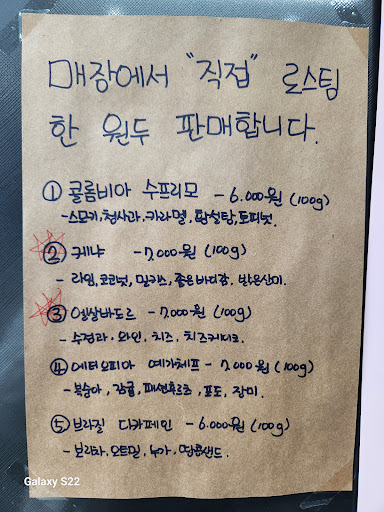 매장에서 "직접" 로스팅
한 원두 판매합니다.
① 콜롬비아 수프리모 - 6.000원 (100g)
- 스모키, 청사과, 카라멜, 흑설탕, 토피넛.
② 케냐 - 7,000원 (100g)
- 라임, 코코넛, 밀키스, 좋은바디감. 밝은산미.
③ 엘살바도르 - 7.000원 (100g)
- 수정과. 와인, 치즈, 치즈케이크.
④ 에티오피아 예가체프 - 7,000원 (100g)
- 복숭아, 감귤, 패션후르츠, 포도, 장미.
⑤ 브라질 디카페인 - 6.000원 (100g)
- 보리차, 오트밀, 누가, 땅콩샌드.
Galaxy S22